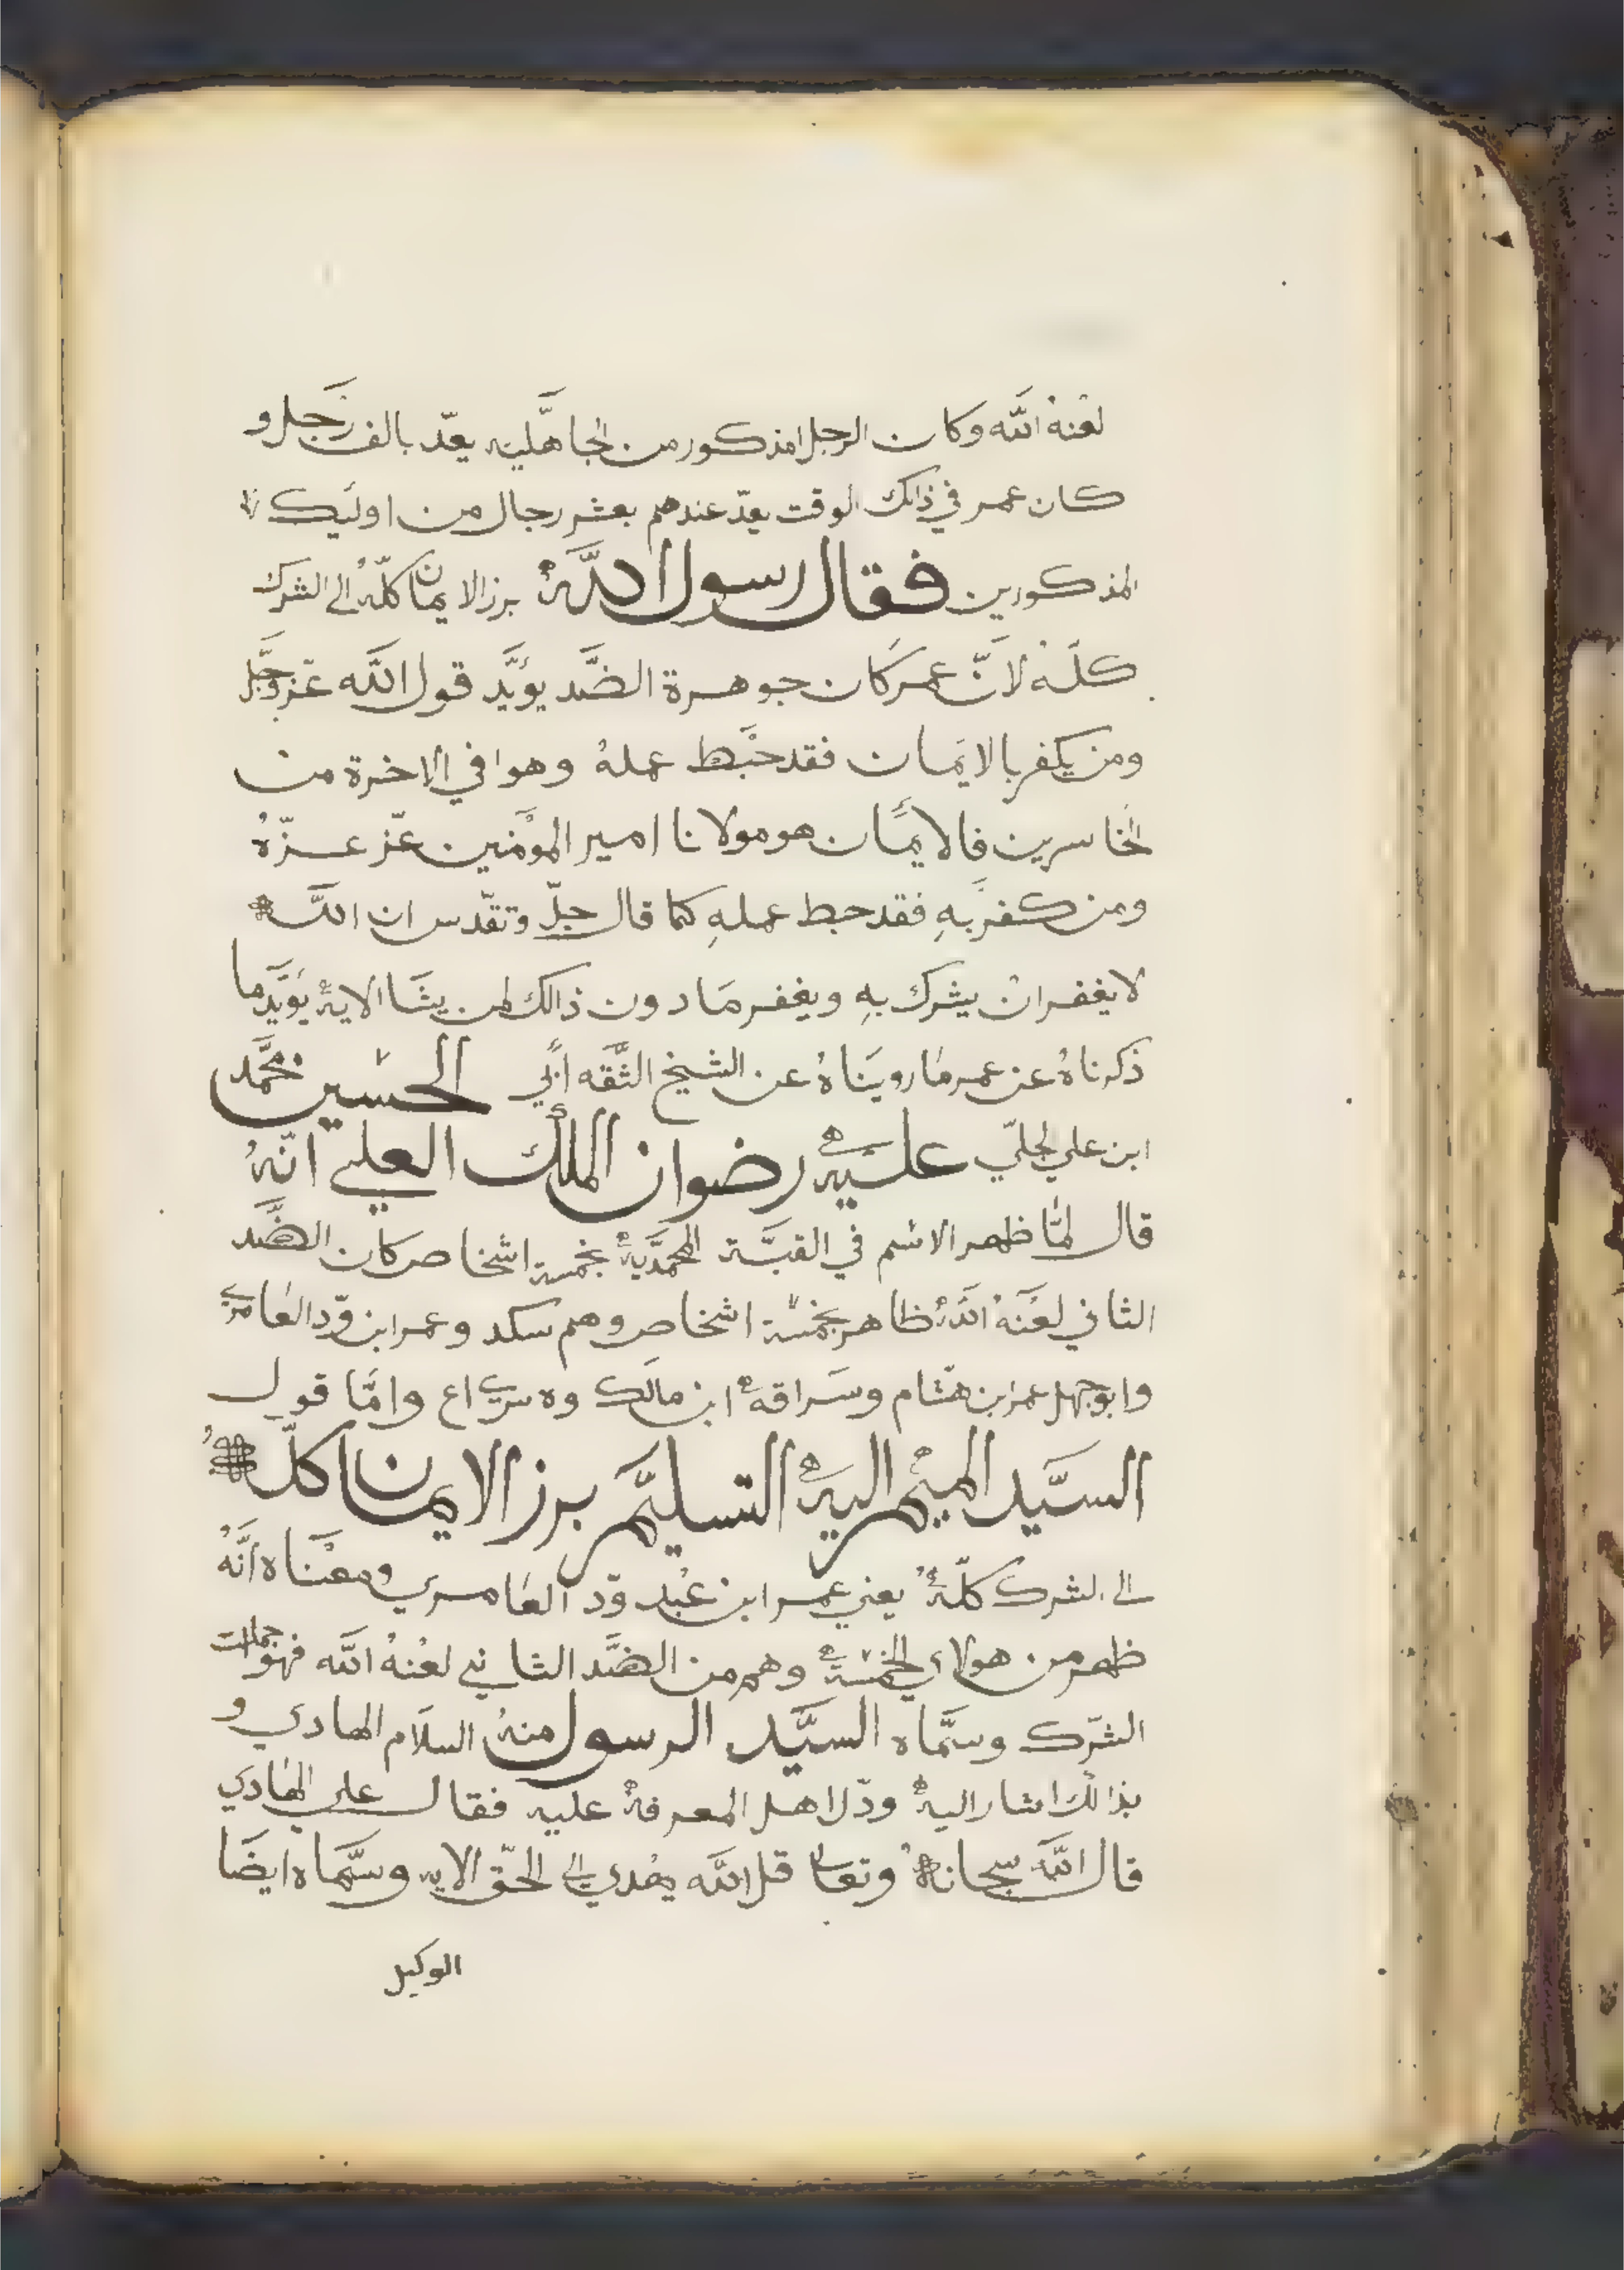 لعنهُ اللّه وكان الرجل امذكور من الجاهَّليه يعدّ بالف رَجل و
كان عمر في ذالك الوقت يعدّ عندهم بعشر رجال من اوليك
المذكورين فقال رسول اللَّهُ برز الايمان كلّهُ الى الشرك
كلّهُ لانَّ عمر كان جوهرة الضَّد يؤيَّد قول اللَّه عَزّ وجَّل
ومن يكفر بالايمَان فقد حبَّط عملهُ وهوا في الاخرة من
الخاسرين فالايمَان هو مولانا امير المؤمنين عَزّ عزّهُ
ومن كفر بَهِ فقد حبط عملهِ كما قال جلّ وتقّدس ان اللَّه
لا يغفر انْ يشرك بهِ ويغفر مَا دون ذالك لمن يشَا الايهُ يؤيَّد ما
ذكرناهُ عن عمر مَا رويَناهُ عن الشيخ الثَّقه اَبي الحسَين محَمَّد
ابن علي الجلّي عليهُ رضوان الملك العلي انّهُ
قال لمّا ظهر الاسْم في القبَّة المحَمَّديهُ بخمسة اشخاص كان الضَّد
الثاني لعَنَهُ اللَّهُ ظاهر بخمسَة اشخاص وهم سكد وعمر ابن وّد العَامري
وابو جهل عمر ابن هشَام وسَراقهُ ابن مالك وه سري اع وامَّا قول
السَّيد الميَم اليهُ التسليَم برز الايمان كلّهُ
الى الشرك كلّهُ يعني عمر ابن عَبْد وّد العَامري ومعَناه انَّهُ
ظهر من هولاي الخمَسةُ وهم من الضَّد الثاني لعَنهُ اللَّه فهو جملت
الشرَك وسمَّاه السيَّد الرسول منهُ السلَام الهادي و
بذالك اشار اليهُ ودّل اهل المعرفهُ عليه فقال علي الهَادي
قال اللَّه سبحانهُ وتعالى قل اللَّه يهْدي الى الحَقّ الايه وسمَّاه ايضَا
الوكيل